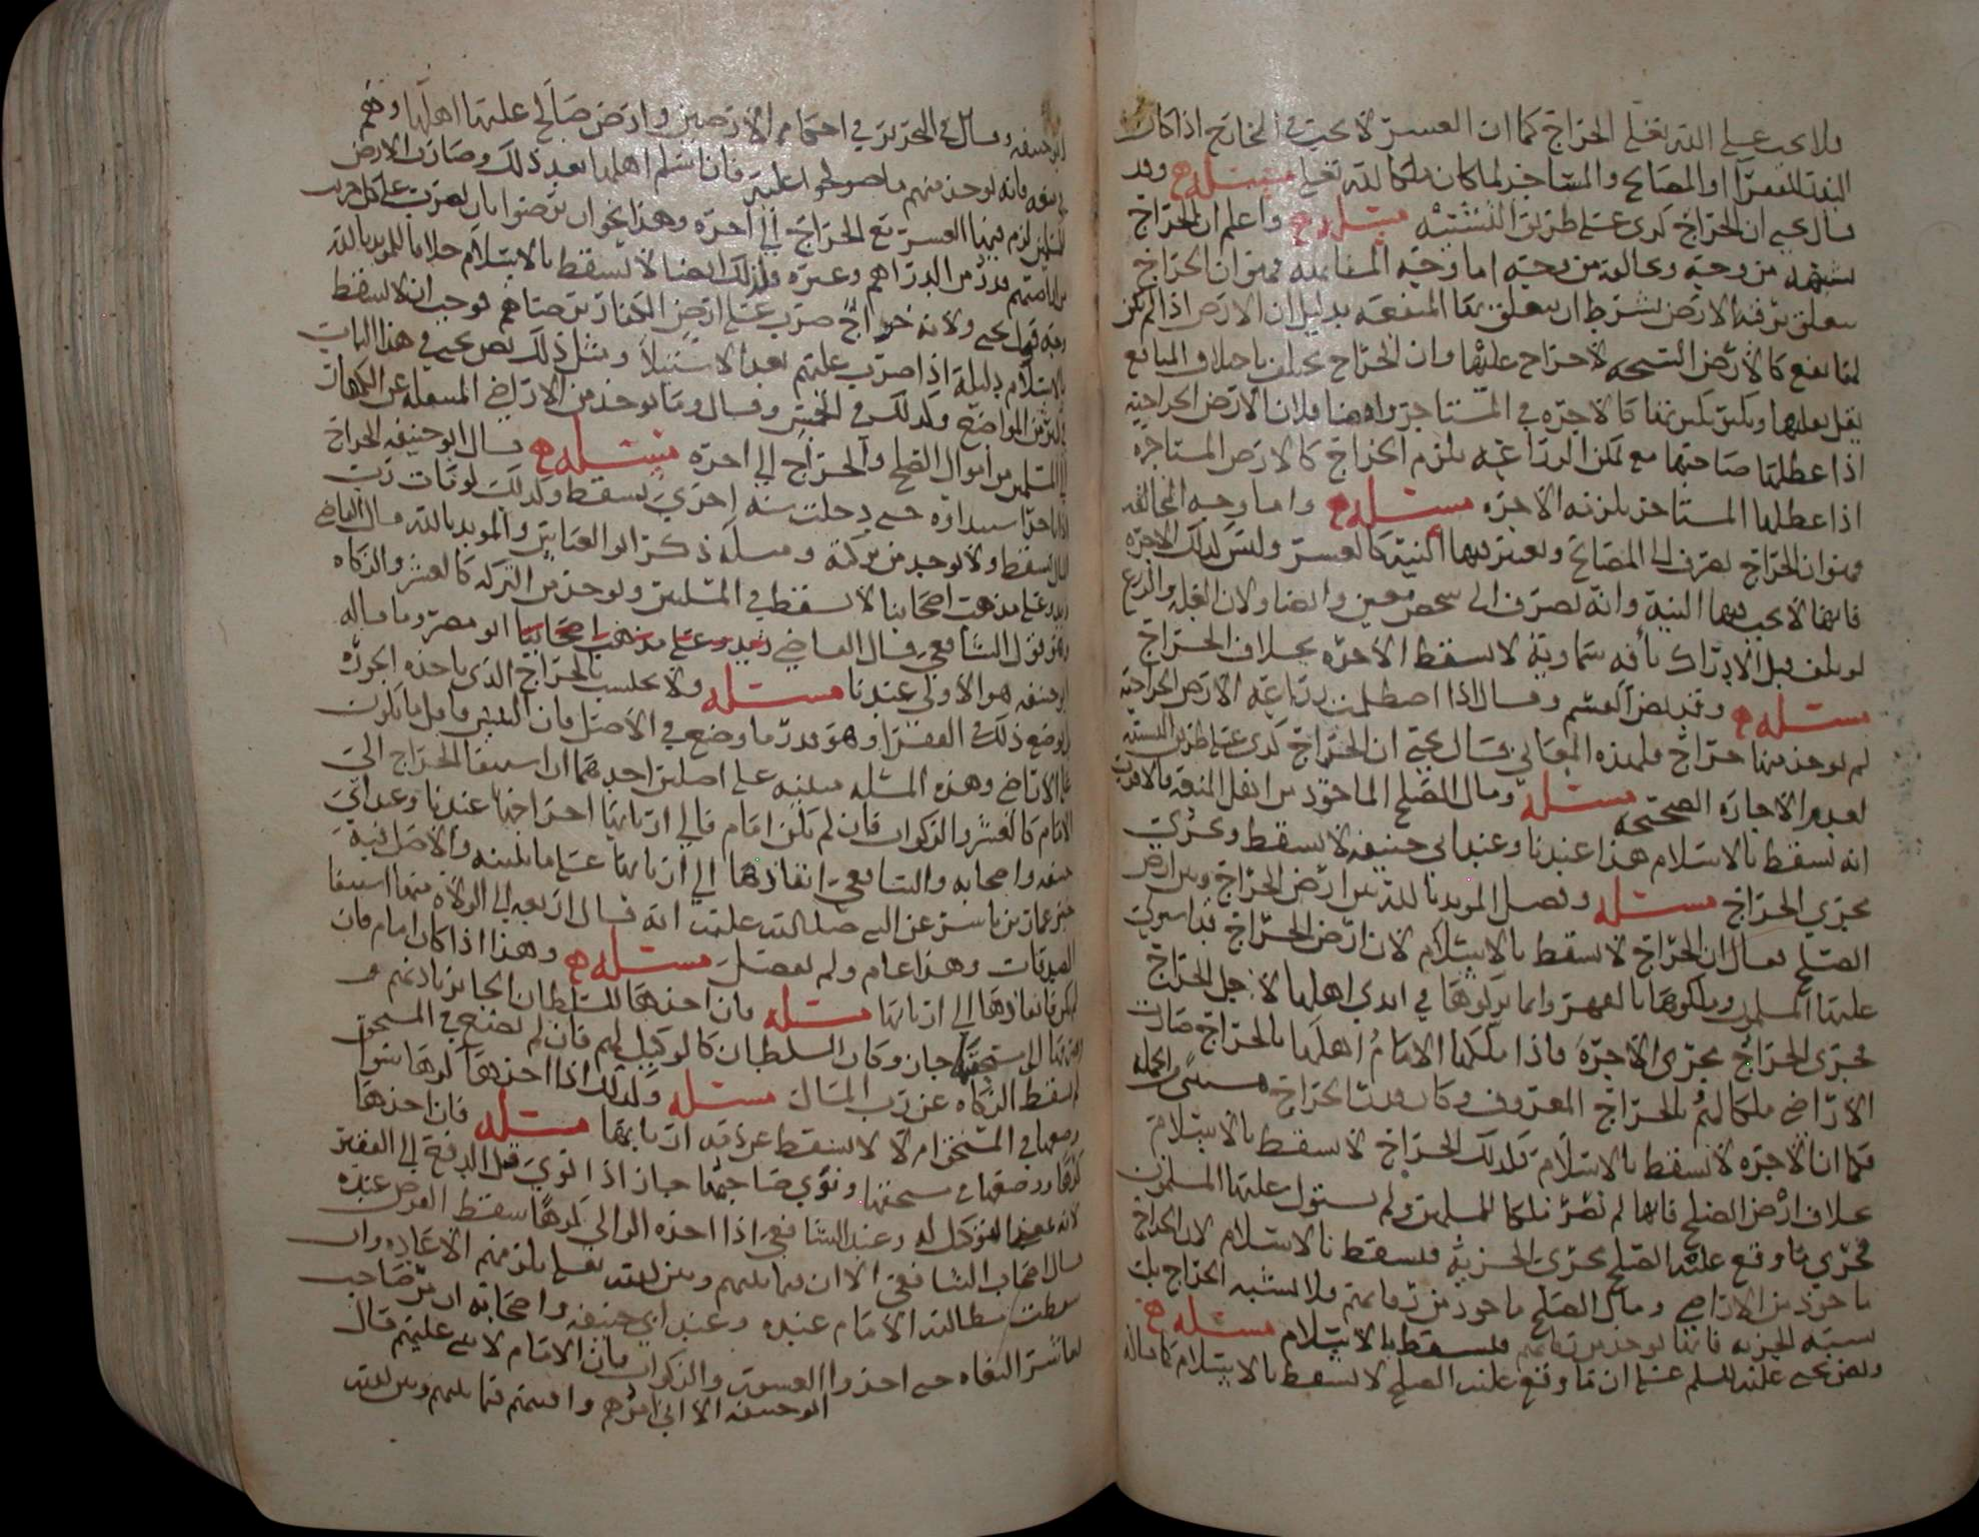 فلا يجب على الله تعلى الخراج كما ان العسر لا يجب في الخارج اذا كان
البذر للفقرآ او المصالح والمساجد لما كان ملكا لله تعلى مسئله وقد
قال يحيى ان الخراج كرى على طريق التشبيه مسئله واعلم ان الخراج
يشبهه من وجه ويخالفه من وجه اما وجه المشابهه فهو ان الخراج
يتعلق برقبه الارض بشرط ان يتعلق بها المنفعه بدليل ان الارض اذا لم يكن
لها نفع كالارض السبخه لا خراج عليها وان الخراج يختلف باختلاف المنافع
كالاجره في المستاجر وايضا فلان الارض الخراجيه
اذا عطلها صاحبها مع تمكن الزراعه يلزم الخراج كالارض المستاجره
اذا عطلها المستاجر يلزمه الاجره مسئله واما وجه المخالفه
فهو ان الخراج يصرف الى المصالح ويعتبر فيها النيه كالعسر وليس كذلك الاجره
فانها لا يجب فيها النيه وانه يصرف الى شخص معين وايضا ولان الغله والزرع
لو تلف قبل الادراك بأفه سماويه لا يسقط الاجره بخلاف الخراج
مسئله وقد نص القسم وقال اذا اصطلمت زراعه الارض الخراجيه
لم يوخذ منها خراج فلهذه المعاني قال يحيى ان الخراج كرى على طريق التشبيه
لعدم الاجاره الصحيحه مسئله ومال الصلح الماخوذ من اهل الذمه بالاقرب
انه يسقط بالاسلام هذا عندنا وعند ابي حنيفه لا يسقط ويجري
مجرى الخراج مسئله وفصل المويد بالله بين ارض الخراج وبين ارض
الصلح فقال ان الخراج لا يسقط بالاسلام لان ارض الخراج قد استولى
عليها المسلمون وملكوها بالقهر وانما تركوها في ايدي اهلها لاجل الخراج
فجرى الخراج مجرى الاجره فاذا ملكها الامام اهلها بالخراج صارت
الاراضي ملكا لهم بالخراج المعروف وكان قدر الخراج
فكما ان الاجره لا تسقط بالاسلام كذلك الخراج لا يسقط بالاسلام
بخلاف ارض الصلح فانها لم تصر ملكا للمسلمين ولم يستول عليها المسلمون
فجرى ما وقع عليه الصلح مجرى الجزيه فيسقط بالاسلام لان الخراج
ماخوذ من الاراضي ومال الصلح ماخوذ من رقابهم ولا يشبه الخراج بل
يشبه الجزيه فانها توخذ من رقابهم فيسقط بالاسلام مسئله
ونص يحيى عليه السلم على ان ما وقع عليه الصلح لا يسقط بالاسلام كما قاله
ابو حنيفه وقال في التحرير في احكام الارضين وارض صالح عليها اهلها وهم
فانه يوخذ منهم ما صولحوا عليه فان اسلم اهلها بعد ذلك وصارت الارض
للمسلمين لزم فيها العسر مع الخراج الى اخره وهذا نحو ان يرضوا بان يضرب على كل جريب
من اراضيهم قدر من الدراهم وغيره فلذلك ايضا لا يسقط بالاسلام خلافا للمويد بالله
ولانه خراج ضرب على ارض الكفار برضاهم فوجب ان لا يسقط
بالاسلام دليله اذا ضرب عليهم بعد الاستيلا ومثل ذلك نص يحيى في هذا الباب
المواضع وكذلك في الخمس وقال وما يوخذ من الاراضي
من اموال الصلح والخراج الى اخره مسئله قال ابو حنيفه الخراج
حتى دخلت سنه اخرى يسقط وكذلك لو مات رب
المال يسقط ولا يوخذ من تركته ومسله ذكر ابو العباس والمويد بالله قال القاضي
زيد وعلى مذهب اصحابنا لا يسقط في المسلمين ويوخذ من التركه كالعشر والزكاه
وهو قول الشافعي قال القاضي زيد وعلى مذهب اصحابنا ابو مضر وما قاله
ابو حنيفه هو الاولى عندنا مسئله ولا يحتسب بالخراج الذي ياخذه الجوره
ويوضع ذلك في الفقرا وهو قدر ما وضع في الاصل فان التبس فاقل ما يكون
على الاراضي وهذه المسئله مبنيه على اصلين احدهما ان استيفا الخراج الى
الامام كالعشر والزكوات فان لم يكن امام فالى اربابها اخراجها عندنا وعند ابي
حنيفه واصحابه والشافعي انفاذها الى اربابها على ما بينه والاصل فيه
خبر عمار بن ياسر عن النبي صلى الله عليه انه قال اربعه الى الولاه منها استيفا
الصدقات وهذا عام ولم يفصل مسئله وهذا اذا كان امام فان
لم يكن فانفاذها الى اربابها مسئله فان اخذها السلطان الجاير باذنهم
الى مستحقها جاز وكان السلطان كالوكيل لهم فان لم يضع في المستحق
لم يسقط الزكاه عن رب المال مسئله وكذلك اذا اخذها كرها سوا
وضعها في المستحق ام لا لا يسقط عن ذمه اربابها مسئله فان اخذها
كرها ووضعها في مستحقها ونوى صاحبها جاز اذا نوى قبل الدفع الى الفقير
وعند الشافعي اذا اخذه الوالي كرها سقط الفرض عنده
قال اصحاب الشافعي الا ان فيما بينهم وبين الله تعلى يلزمهم الاعاده وان
سقطت مطالبه الامام عنده وعند ابي حنيفه واصحابه ان مر صاحب
المال بعاشر البغاه حتى اخذوا العسور والزكوات فان الامام لا عليهم قال
ابو حنيفه الا اني امرهم وافتيهم فيما بينهم وبين الله